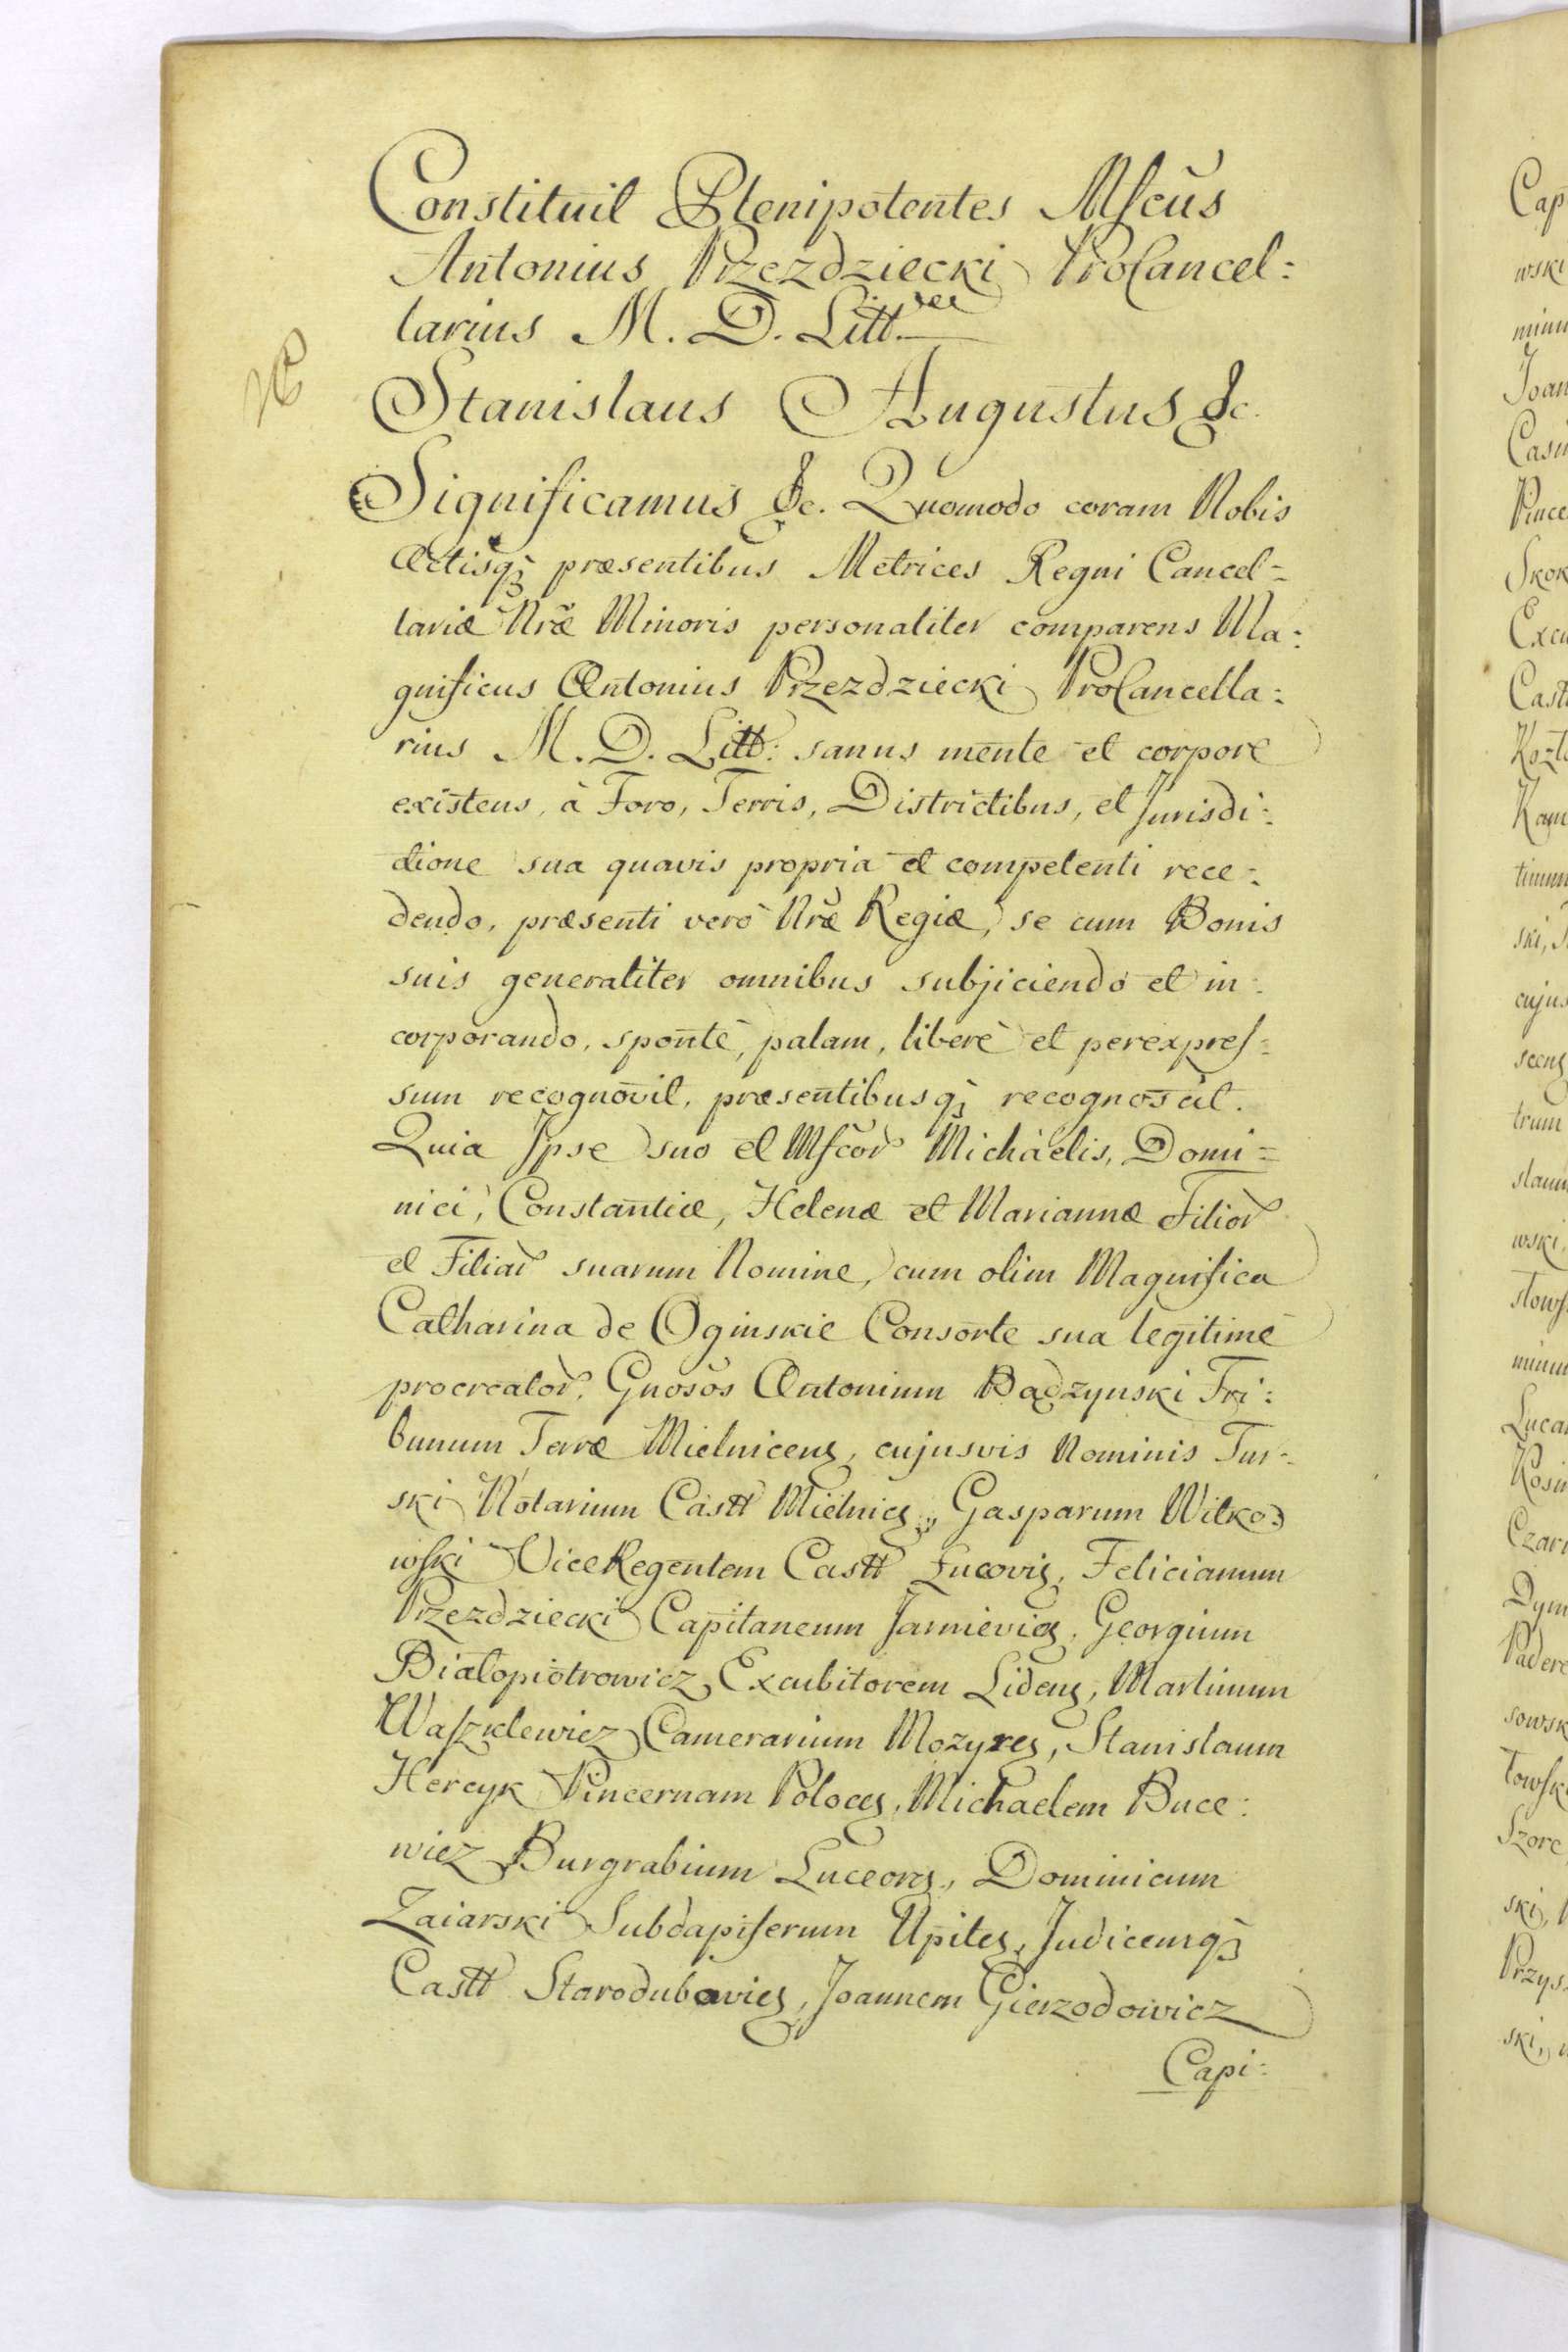 Constituit Plenipotentes Mfcus
Antonius Przezdziecki ProCancel=
larius M. D. Litt.væ
Stanislaus Augustus &c.
Significamus &c. Quomodo coram Nobis
Actisq; præsentibus Metrices Regni Cancel=
lariæ Nræ Minoris personaliter comparens Ma=
gnificus Antonius Przezdziecki ProCancella=
rius M. D. Litt: sanus mente et corpore
existens, à Foro, Terris, Districtibus, et Jurisdi=
ctione sua quavis propria et competenti rece=
dendo, præsenti verò Nræ Regiæ, se cum Bonis
suis generaliter omnibus subjiciendo et in=
corporando, spontè, palam, liberè et perexpres=
sum recognovit, præsentibusq; recognoscit.
Quia Ipse suo et Mfcor Michaelis, Domi=
nici, Constantiæ, Helenæ et Mariannæ Filior
et Filiar suarum Nomine, cum olim Magnifica
Catharina de Oginskie Consorte sua legitimè
procreator, Gnosos Antonium Bądzynski Tri=
bunum Terræ Mielnicens, cujusvis Nominis Tur=
ski Notarium Castt Mielnics, Gasparum Witko=
wski ViceRegentem Castt Łucovis, Felicianum
Przezdziecki Capitaneum Jarnievics, Georgium
Białopiotrowicz Excubitorem Lidens, Martinum
Waszklewicz Camerarium Mozyres, Stanislaum
Hercyk Pincernam Poloces, Michaelem Buce=
wicz Burgrabium Luceors, Dominicum
Zaiarski Subdapiferum Upites, Judicemq;
Castt Starodubovies, Joannem Gierzodowicz
Capi=
Cap
wski
minu
Joan
Casi
Pince
Skok
Excu
Cast
Kozł
Kam
timum
ski,
cujus
scens
trum
slaum
wski,
stows
minu
Luca
Kosi
Czar
Dym
Padere
sowsk
towsk
Szore
ski,
Przys
ski,